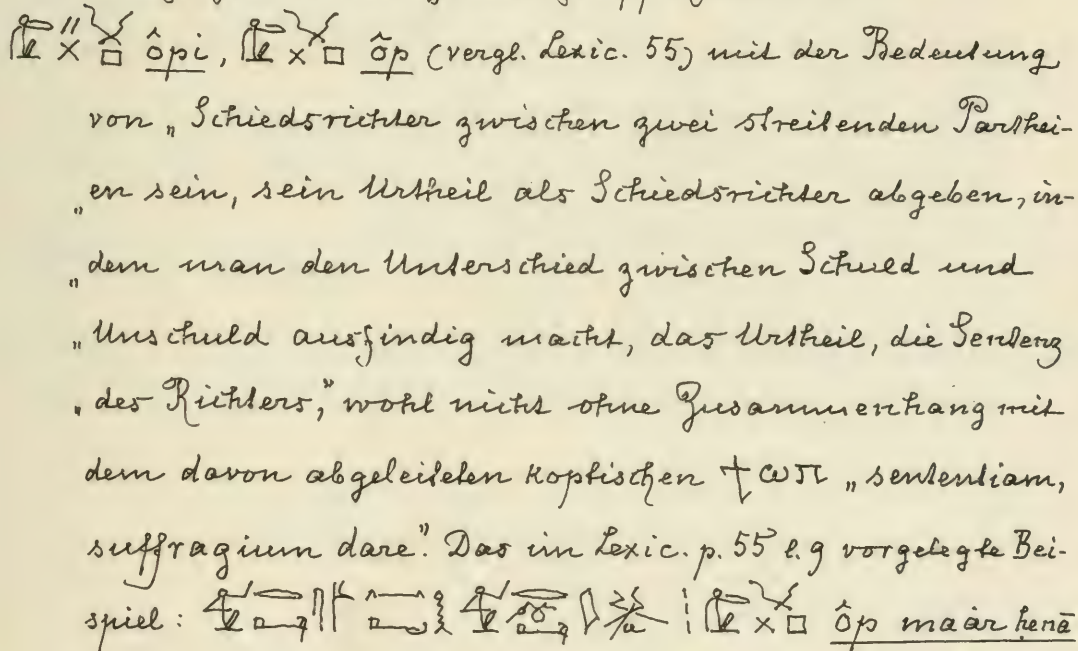 ôpi, ôp (vergl. Lexic. 55) mit der Bedeutung
von „Schiedsrichter zwischen zwei streitenden Parthei-
„en sein, sein Urtheil als Schiedsrichter abgeben, in-
„dem man den Unterschied zwischen Schuld und
„Unschuld ausfindig macht, das Urtheil, die Sentenz
„des Richters,” wohl nicht ohne Zusammenhang mit
dem davon abgeleiteten koptischen ϯ ⲱⲡ „sententiam,
suffragium dare.” Das im Lexic. p. 55 l. 9 vorgelegte Bei-
spiel: ôp maàr henā